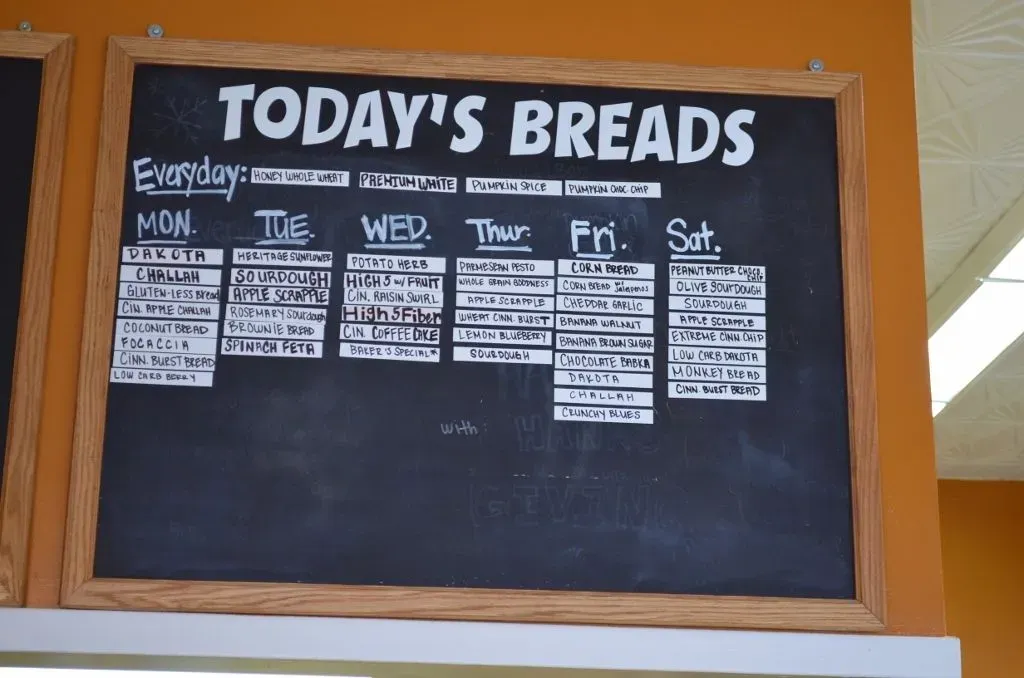 TODAY'S BREADS
Everyday: HONEY WHOLE WHEAT PREMIUM WHITE PUMPKIN SPICE PUMPKIN CHOC CHIP
MON.
DAKOTA
CHALLAH
GLUTEN-LESS BREAD
CIN. APPLE CHALLAH
COCONUT BREAD
FOCACCIA
CINN. BURST BREAD
LOW CARB BERRY
TUE.
HERITAGE SUNFLOWER
SOURDOUGH
APPLE SCRAPPLE
ROSEMARY SOURDOUGH
BROWNIE BREAD
SPINACH FETA
WED.
POTATO HERB
HIGH 5 W/ FRUIT
CIN. RAISIN SWIRL
HIGH 5 FIBER
CIN. COFFEECAKE
BAKER'S SPECIAL*
Thur.
PARMESAN PESTO
WHOLE GRAIN GOODNESS
APPLE SCRAPPLE
WHEAT CINN. BURST
LEMON BLUEBERRY
SOURDOUGH
Fri.
CORN BREAD
CORN BREAD w/ Jalapenos
CHEDDAR GARLIC
BANANA WALNUT
BANANA BROWN SUGAR
CHOCOLATE BABKA
DAKOTA
CHALLAH
CRUNCHY BLUES
Sat.
PEANUT BUTTER CHOC. CHIP
OLIVE SOURDOUGH
SOURDOUGH
APPLE SCRAPPLE
EXTREME CINN CHIP
LOW CARB DAKOTA
MONKEY BREAD
CINN BURST BREAD
with: